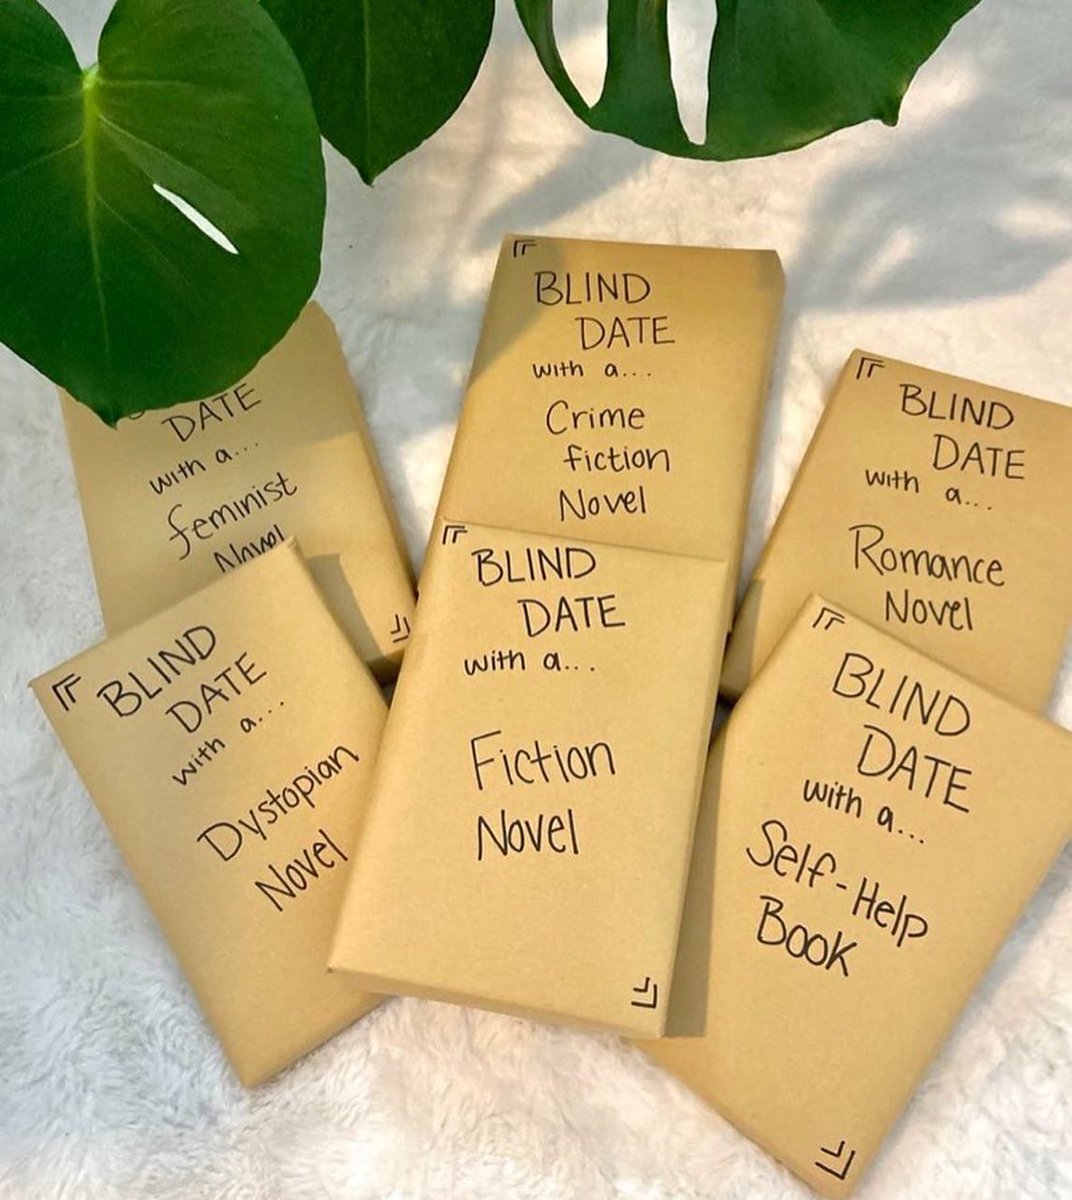 DATE
with a...
feminist
Novel
BLIND
DATE
with a...
Crime
fiction
Novel
BLIND
DATE
with a...
Romance
Novel
BLIND
DATE
with a...
Dystopian
Novel
BLIND
DATE
with a...
Fiction
Novel
BLIND
DATE
with a...
Self-Help
Book